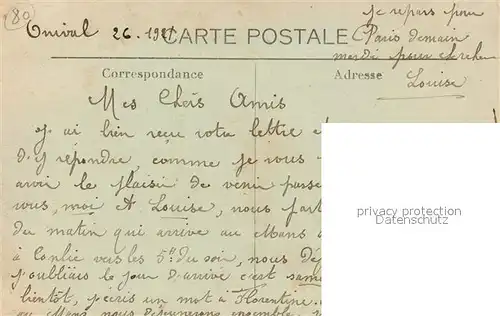 (80)
Onival 26. 19
je repars pour
Paris demain
mardi pour chercher
Louise
CARTE POSTALE
Correspondance
Adresse
Mes Chers Amis
j'ai bien reçu votre lettre et
d'y répondre, comme je vous
avoir le plaisir de venir passe
vous, moi et Louise, nous part
du matin qui arrive au Mans
à Conlie vers les 5h du soir, nous dé
j'oubliais le jour d'arrivé c'est same
bientôt, j'écris un mot à Florentine.
au Mans nous déjeunerons ensemble,
privacy protection
Datenschutz